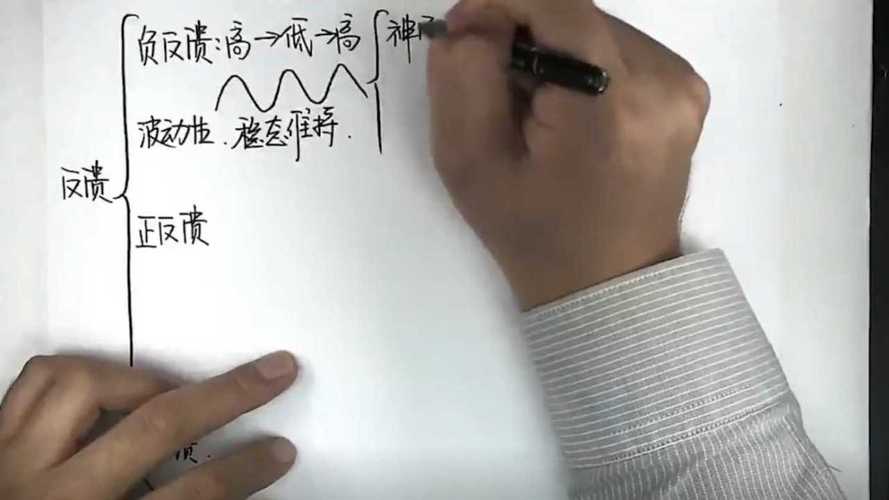 负反馈:高→低→高
神
波动性.稳态维持.
反馈
正反馈
馈.